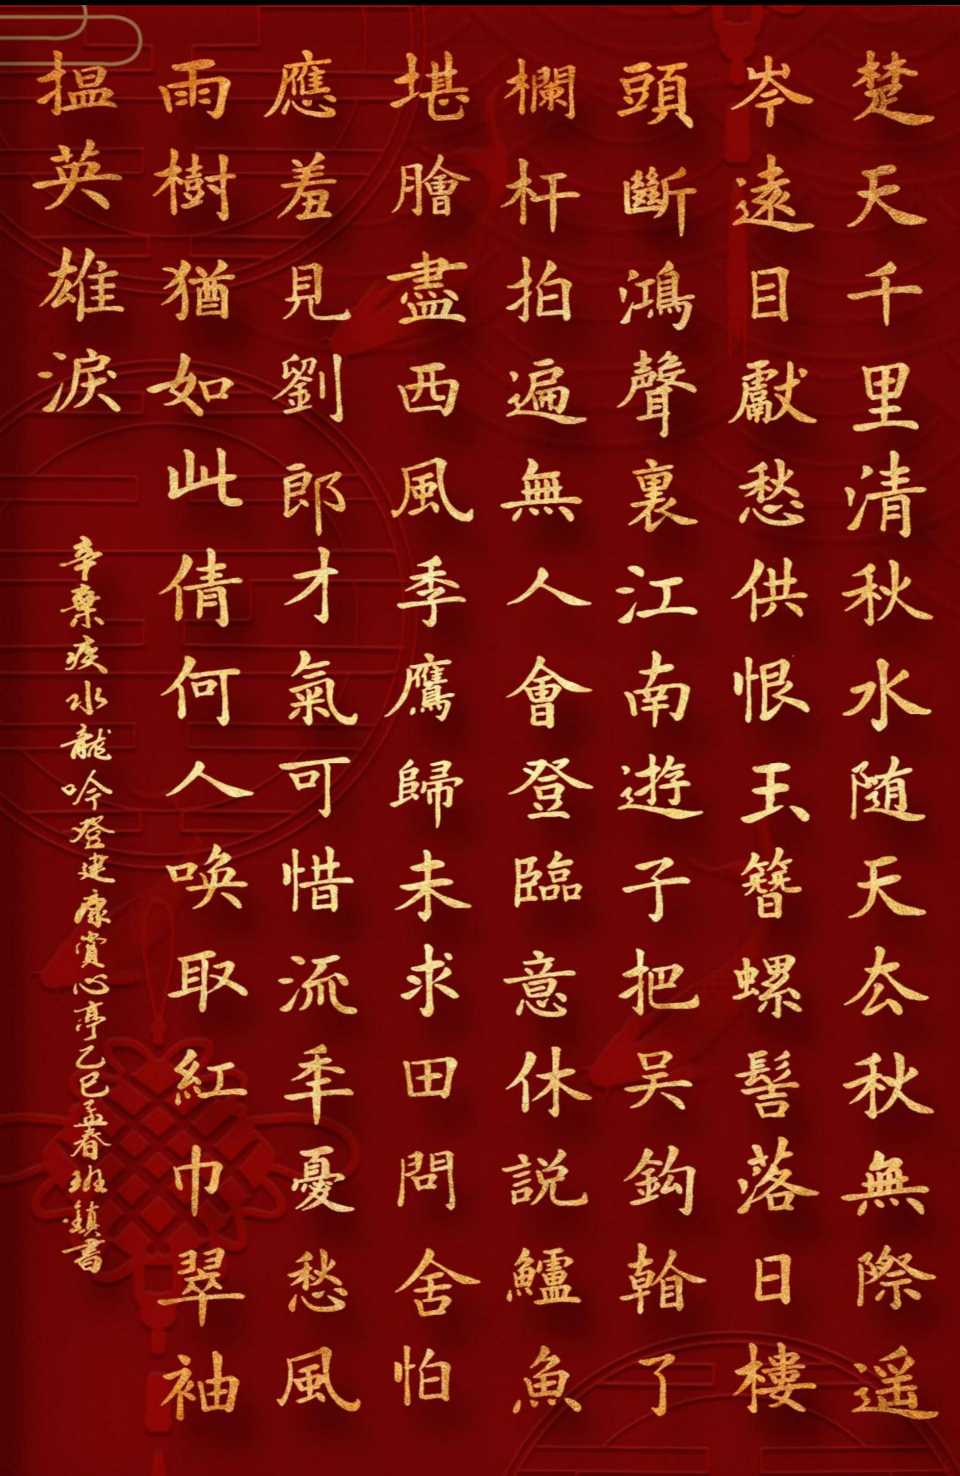 楚天千里清秋水随天去秋無際遥
岑遠目獻愁供恨玉簪螺髻落日樓
頭斷鴻聲裏江南遊子把吴鈎翰了
欄杆拍遍無人會登臨意休説鱸魚
堪膾盡西風季鷹歸未求田問舍怕
應羞見劉郎才氣可惜流年憂愁風
雨樹猶如此倩何人唤取紅巾翠袖
揾英雄淚
辛棄疾水龍吟登建康賞心亭乙巳孟春班鎮書